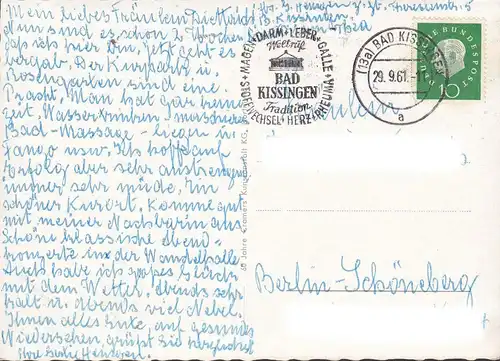 Mein liebes Fräulein Dietrich
Nun sind es schon 2 Wochen
das ich hier bin, jetzt geht es
bergab. Der Kurpark u.
Rosengarten sind eine
Pracht. Man hat gar keine
Zeit, Wassertrinken
Bad - Massage - liegen u.
Fango usw. Ich hoffe auf
Erfolg aber sehr anstrengend
immer sehr müde. Ein
schöner Kurort. Komme gut
mit meiner Nachbarin aus
Schöne klassische Abend-
konzerte in der Wandelhalle
Auch habe ich großes Glück
mit dem Wetter, abends sehr
kalt u. abends viel Nebel.
Ihnen alles Gute auf gesundes
Wiedersehen grüßt sie herzlichst
Ihre
Bad Kissingen
MAGEN · DARM · LEBER · GALLE · RHEUMA · HERZ · STOFFWECHSEL
Weltruf
BAD
KISSINGEN
Tradition
(13a) BAD KISSINGEN
29.9.61
a
DEUTSCHE BUNDESPOST
10
Berlin-Schöneberg
50 Jahre Kramers Kunstanstalt KG,